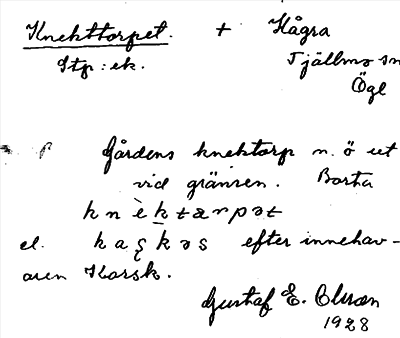 Knekttorpet. + Hågra
Stp: ek. Tjällmo sn
Ögl
Gårdens knektorp n. ö ut
vid gränsen. Borta
k n è k t æ r p ə t
el. k a ʂ k ə s efter innehav-
aren Karsk.
Gustaf E. Olsson
1928